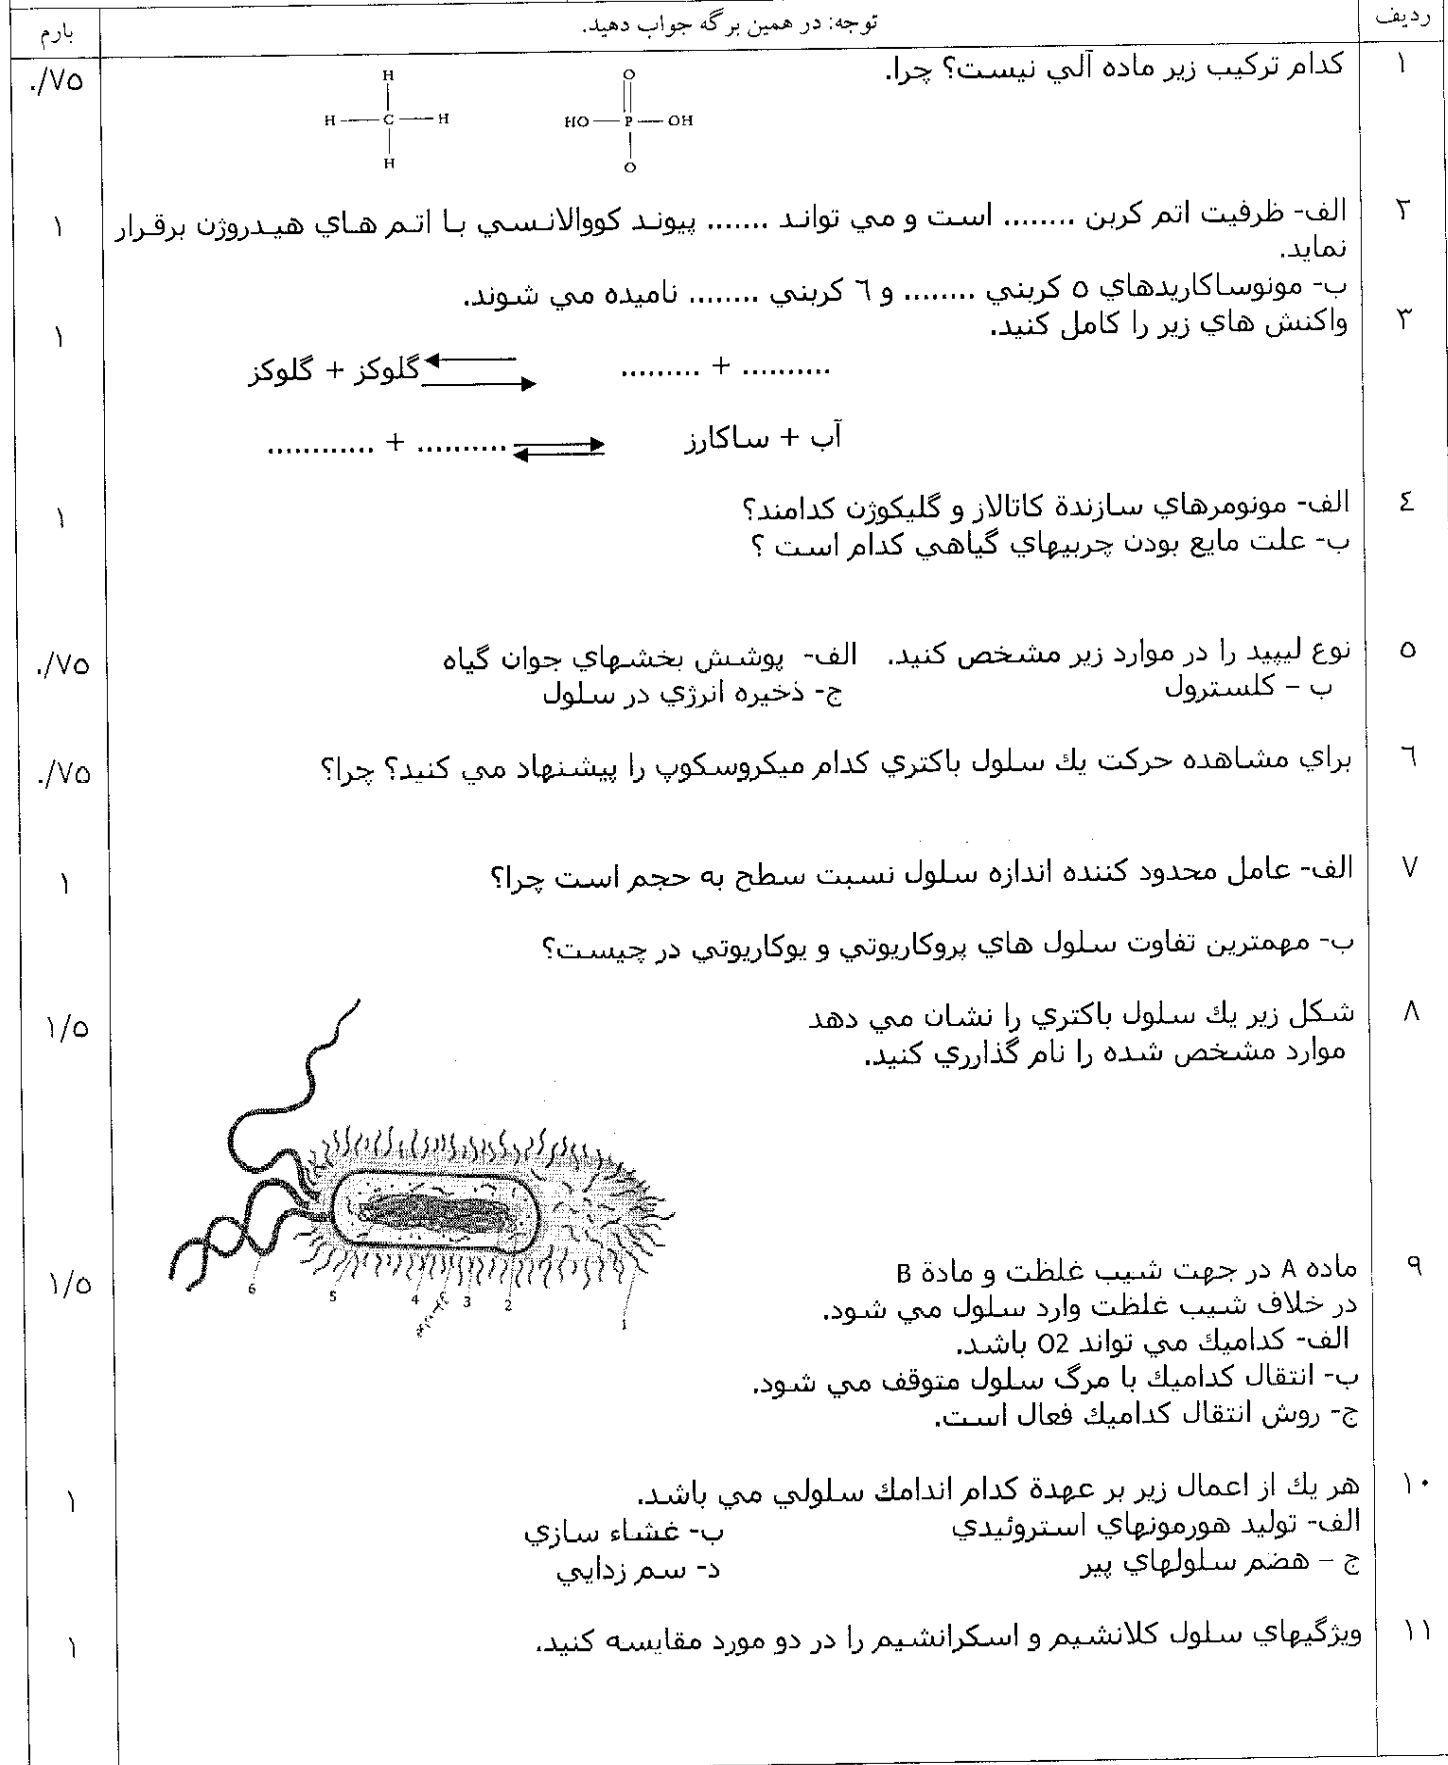 ردیف
توجه: در همین برگه جواب دهید.
بارم
۱
کدام ترکیب زیر ماده آلي نیست؟ چرا.
۰/۷۵
H
H C H
H
O
HO P OH
O
۲
الف- ظرفیت اتم کربن ........ است و مي تواند ....... پیوند کووالانسي با اتم هاي هیدروژن برقرار
نماید.
ب- مونوساکاریدهاي ٥ کربني ........ و ٦ کربني ........ نامیده مي شوند.
۱
۳
واکنش هاي زیر را کامل کنید.
۱
گلوکز + گلوکز
.......... + .........
آب + ساکارز
.......... + ............
٤
الف- مونومرهاي سازندة کاتالاز و گلیکوژن کدامند؟
ب- علت مایع بودن چربیهاي گیاهي کدام است ؟
۱
٥
نوع لیپید را در موارد زیر مشخص کنید. الف- پوشش بخشهاي جوان گیاه
ب – کلسترول ج- ذخیره انرژي در سلول
۰/۷۵
٦
براي مشاهده حرکت یك سلول باکتري کدام میکروسکوپ را پیشنهاد مي کنید؟ چرا؟
۰/۷۵
۷
الف- عامل محدود کننده اندازه سلول نسبت سطح به حجم است چرا؟
ب- مهمترین تفاوت سلول هاي پروکاریوتي و یوکاریوتي در چیست؟
۱
۸
شکل زیر یك سلول باکتري را نشان مي دهد
موارد مشخص شده را نام گذارري کنید.
۱/۵
6 5 4 3 2 1
۹
ماده A در جهت شیب غلظت و مادة B
در خلاف شیب غلظت وارد سلول مي شود.
الف- کدامیك مي تواند O2 باشد.
ب- انتقال کدامیك با مرگ سلول متوقف مي شود.
ج- روش انتقال کدامیك فعال است.
۱/۵
۱۰
هر یك از اعمال زیر بر عهدة کدام اندامك سلولي مي باشد.
الف- تولید هورمونهاي استروئیدي ب- غشاء سازي
ج – هضم سلولهاي پیر د- سم زدایي
۱
۱۱
ویژگیهاي سلول کلانشیم و اسکرانشیم را در دو مورد مقایسه کنید.
۱